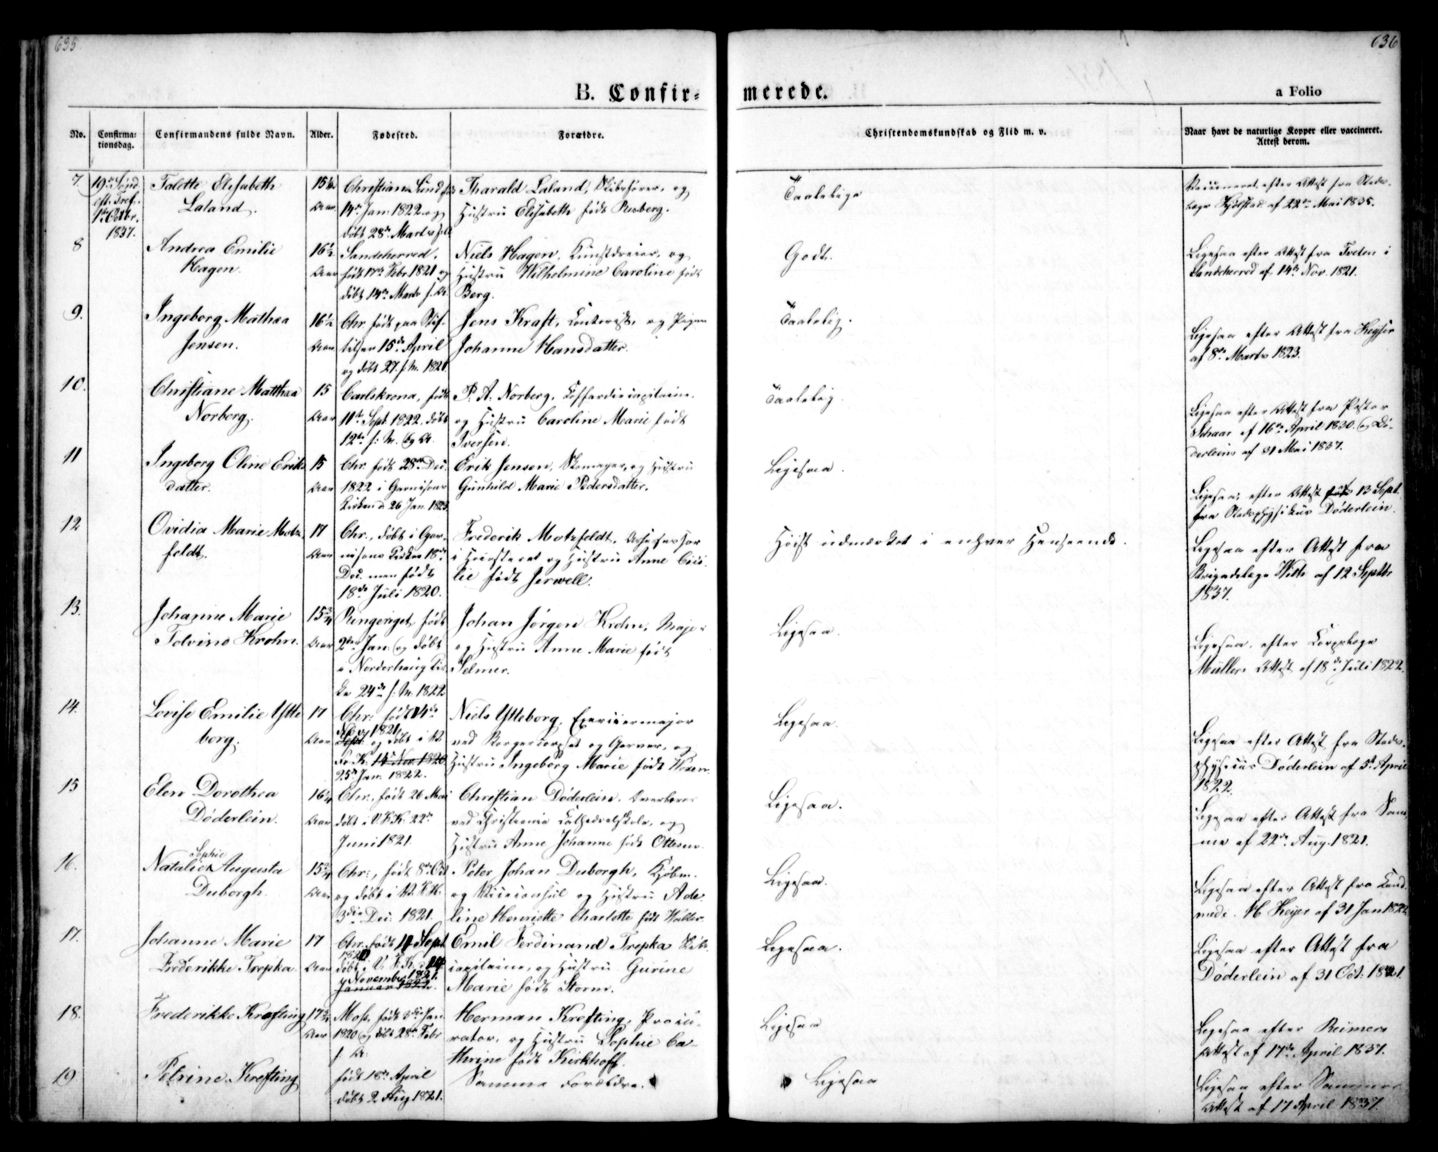 635
636
B. Confirmerede.
a Folio
No.
Confirmationsdag.
Confirmandens fulde Navn.
Alder.
Fødested.
Forældre.
Christendomskundskab og Flid m. v.
Naar havt de naturlige Kopper eller vaccineret. Attest derom.
7
1837.
Talette Elisabeth
Laland.
Aar
14de Jan 1822 og
døbt 28de Marts
Tharald Laland, og
Hustru Elisabeth født
Taalelige
Vaccineret efter Attest fra
af 22de Mai 1835.
8
Andrea Emilie
Hagen.
16½
Aar
Sandeherred,
født 17de Febr. 1821 og
døbt 14de Marts s. A.
Niels Hagen, Kunstdreier, og
Hustru Wilhelmine Caroline født
Berg.
Godt.
Ligesaa efter Attest fra
Sandeherred af 14de Nov. 1821.
9.
Ingeborg Mathea
Jensen.
16½
Aar
Chr. født paa Stif-
telsen 15de April
og døbt 27. s. M. 1821
Jens Kraft, og Pigen
Johanne Hansdatter.
Taalelig.
Ligesaa efter Attest fra Keyser
af 8de Marts 1823.
10.
Christiane Matthea
Norberg.
15
Aar
Carlskrona, født
11te Sept. 1822, døbt
12te s. M. og A.
P. A. Norberg, Cofferdicapitaine,
og Hustru Caroline Marie født
Iversen.
Taalelig.
Ligesaa efter Attest fra Pastor
Schaar af 16de April 1830 og Dø-
derlein af 31 Mai 1837.
11
Ingeborg Oline Eriks-
datter.
15
Aar
Chr. født 28de Dec.
1822 i Garnisons
Kirken d. 26 Jan. 1823
Erik Jensen, Skomager, og Hustru
Gunhild Marie Pedersdatter.
Ligesaa.
Ligesaa, efter Attest 13 Sept.
fra Stadsphysikus Døderlein.
12.
Ovidia Marie Motz-
feldt.
17
Aar
Chr., døbt i Gar-
nisons Kirken 18de
Dec. men født
18de Juli 1820.
Frederik Motzfeldt, Assessor
i Høiesteret og Hustru Anne Ceci-
lie født Jerwell.
Høist udmærket i enhver Henseende.
Ligesaa efter Attest fra
Brigadelæge Witte af 12 Septbr
1837.
13.
Johanne Marie
Tolvine Krohn.
15¾
Aar
Ringeriget, født
2den Jan. og døbt
i Norderhoug Kir-
ke 24de s. M. 1822
Johan Jørgen Krohn, Major
og Hustru Anne Marie født
Selmer.
Ligesaa.
Ligesaa, efter Corpslæge
Müllers Attest af 18de Juli 1822.
14.
Lovise Emilie Ytte-
borg.
17
Aar
Chr. født 14de
1821
25de Jan. 1822.
Niels Ytteborg, Exerceermajor
ved Borgercorpset og Garver, og
Hustru Ingeborg Marie født
Ligesaa.
Ligesaa efter Attest fra Stads-
physicus Døderlein af 5te April
1822.
15
Elen Dorothea
Døderlein.
16¼
Aar
Chr., født 26 Mai
døbt i V. F. K. 22de
Juni 1821.
Christian Døderlein, Overlærer
ved Christiania Cathedralskole, og
Hustru Anne Johanne født Ottesen.
Ligesaa.
Ligesaa efter Attest fra Sam-
me af 22de Aug. 1821.
16.
Natalie Sophie Augusta
Duborgh.
15¾
Aar
Chr., født 8de Oct.
og døbt i V. F. K.
3die Dec. 1821.
Peter Johan Duborgh, Kjøbm.
og Viceconsul og Hustru Ade-
line Henriette Charlotte født Müller.
Ligesaa.
Ligesaa efter Attest fra Cand.
med. M. Keyser af 31 Jan 1822
17.
Johanne Marie
Frederikke Trepka.
17
Aar
Chr. født 14 Sept.
døbt i V. F. K. d. 14
November 1821.
Emil Ferdinand Trepka
capitaine, og Hustru Gurine
Marie født Storm.
Ligesaa.
Ligesaa efter Attest fra
Døderlein af 31 Oct. 1821
18.
Frederikke Krefting
17¾
Aar
Moss, født 3die Jan.
1820 og døbt 28de Febr.
s. A.
Herman Krefting, Procu-
rator, og Hustru Sophie Ca-
thrine født Kerkhoff.
Ligesaa
Ligesaa efter Reimers
Attest af 17de April 1837.
19
Petrine Krefting
født 18de April
døbt 2 Aug 1821.
Samme Forældre.
Ligesaa
Ligesaa efter Sammes
Attest af 17 April 1837.